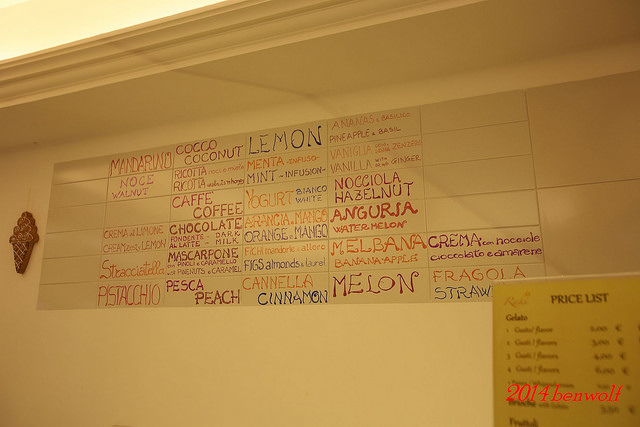 MANDARUNCI
NOCE
WALNUT
CREMA al LIMONE
CREAM LONG LEMON
Stracciatella
PISTACCHIO
COCCO
COCONUT
RICOTTA
RICOTTA
CAFFE
COFFEE
CHOCOLATE
FONDENTE - DARK
AL LATTE - MILK
MASCARPONE
con PINOLI e CARAMELLO
PESCA
PEACH
LEMON
MENTA - INFUSO -
MINT - INFUSION -
YOGURT BIANCO
WHITE
ARANCIA e MANGO
ORANGE e MANGO
FICHI mandorle e alloro
FIGS almonds e laurel
CANNELLA
CINNAMON
ANANAS e BASILICO
PINEAPPLE e BASIL
VANIGLIA ZENZERO
VANILLA with GINGER
NOCCIOLA
HAZELNUT
ANGURIA
WATERMELON
MELBANA
BANANA APPLE
MELON
CREMA con nocciole
cioccolato e amarene
FRAGOLA
STRAW
PRICE LIST
Gelato
2014 benwolf